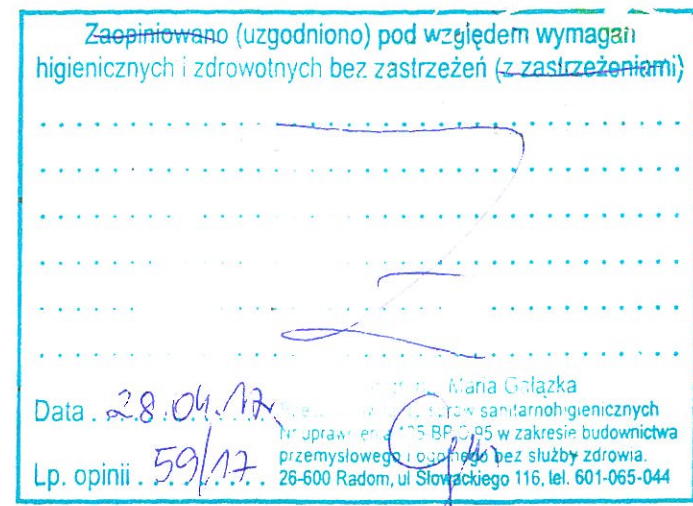 Zaopiniowano (uzgodniono) pod względem wymagań
higienicznych i zdrowotnych bez zastrzeżeń (z zastrzeżeniami)
Data . 28.04.17r.
Maria Gałązka
sanitarnohigienicznych
w zakresie budownictwa
przemysłowego i ogólnego bez służby zdrowia.
Lp. opinii . 59/17
26-600 Radom, ul Słowackiego 116, tel. 601-065-044